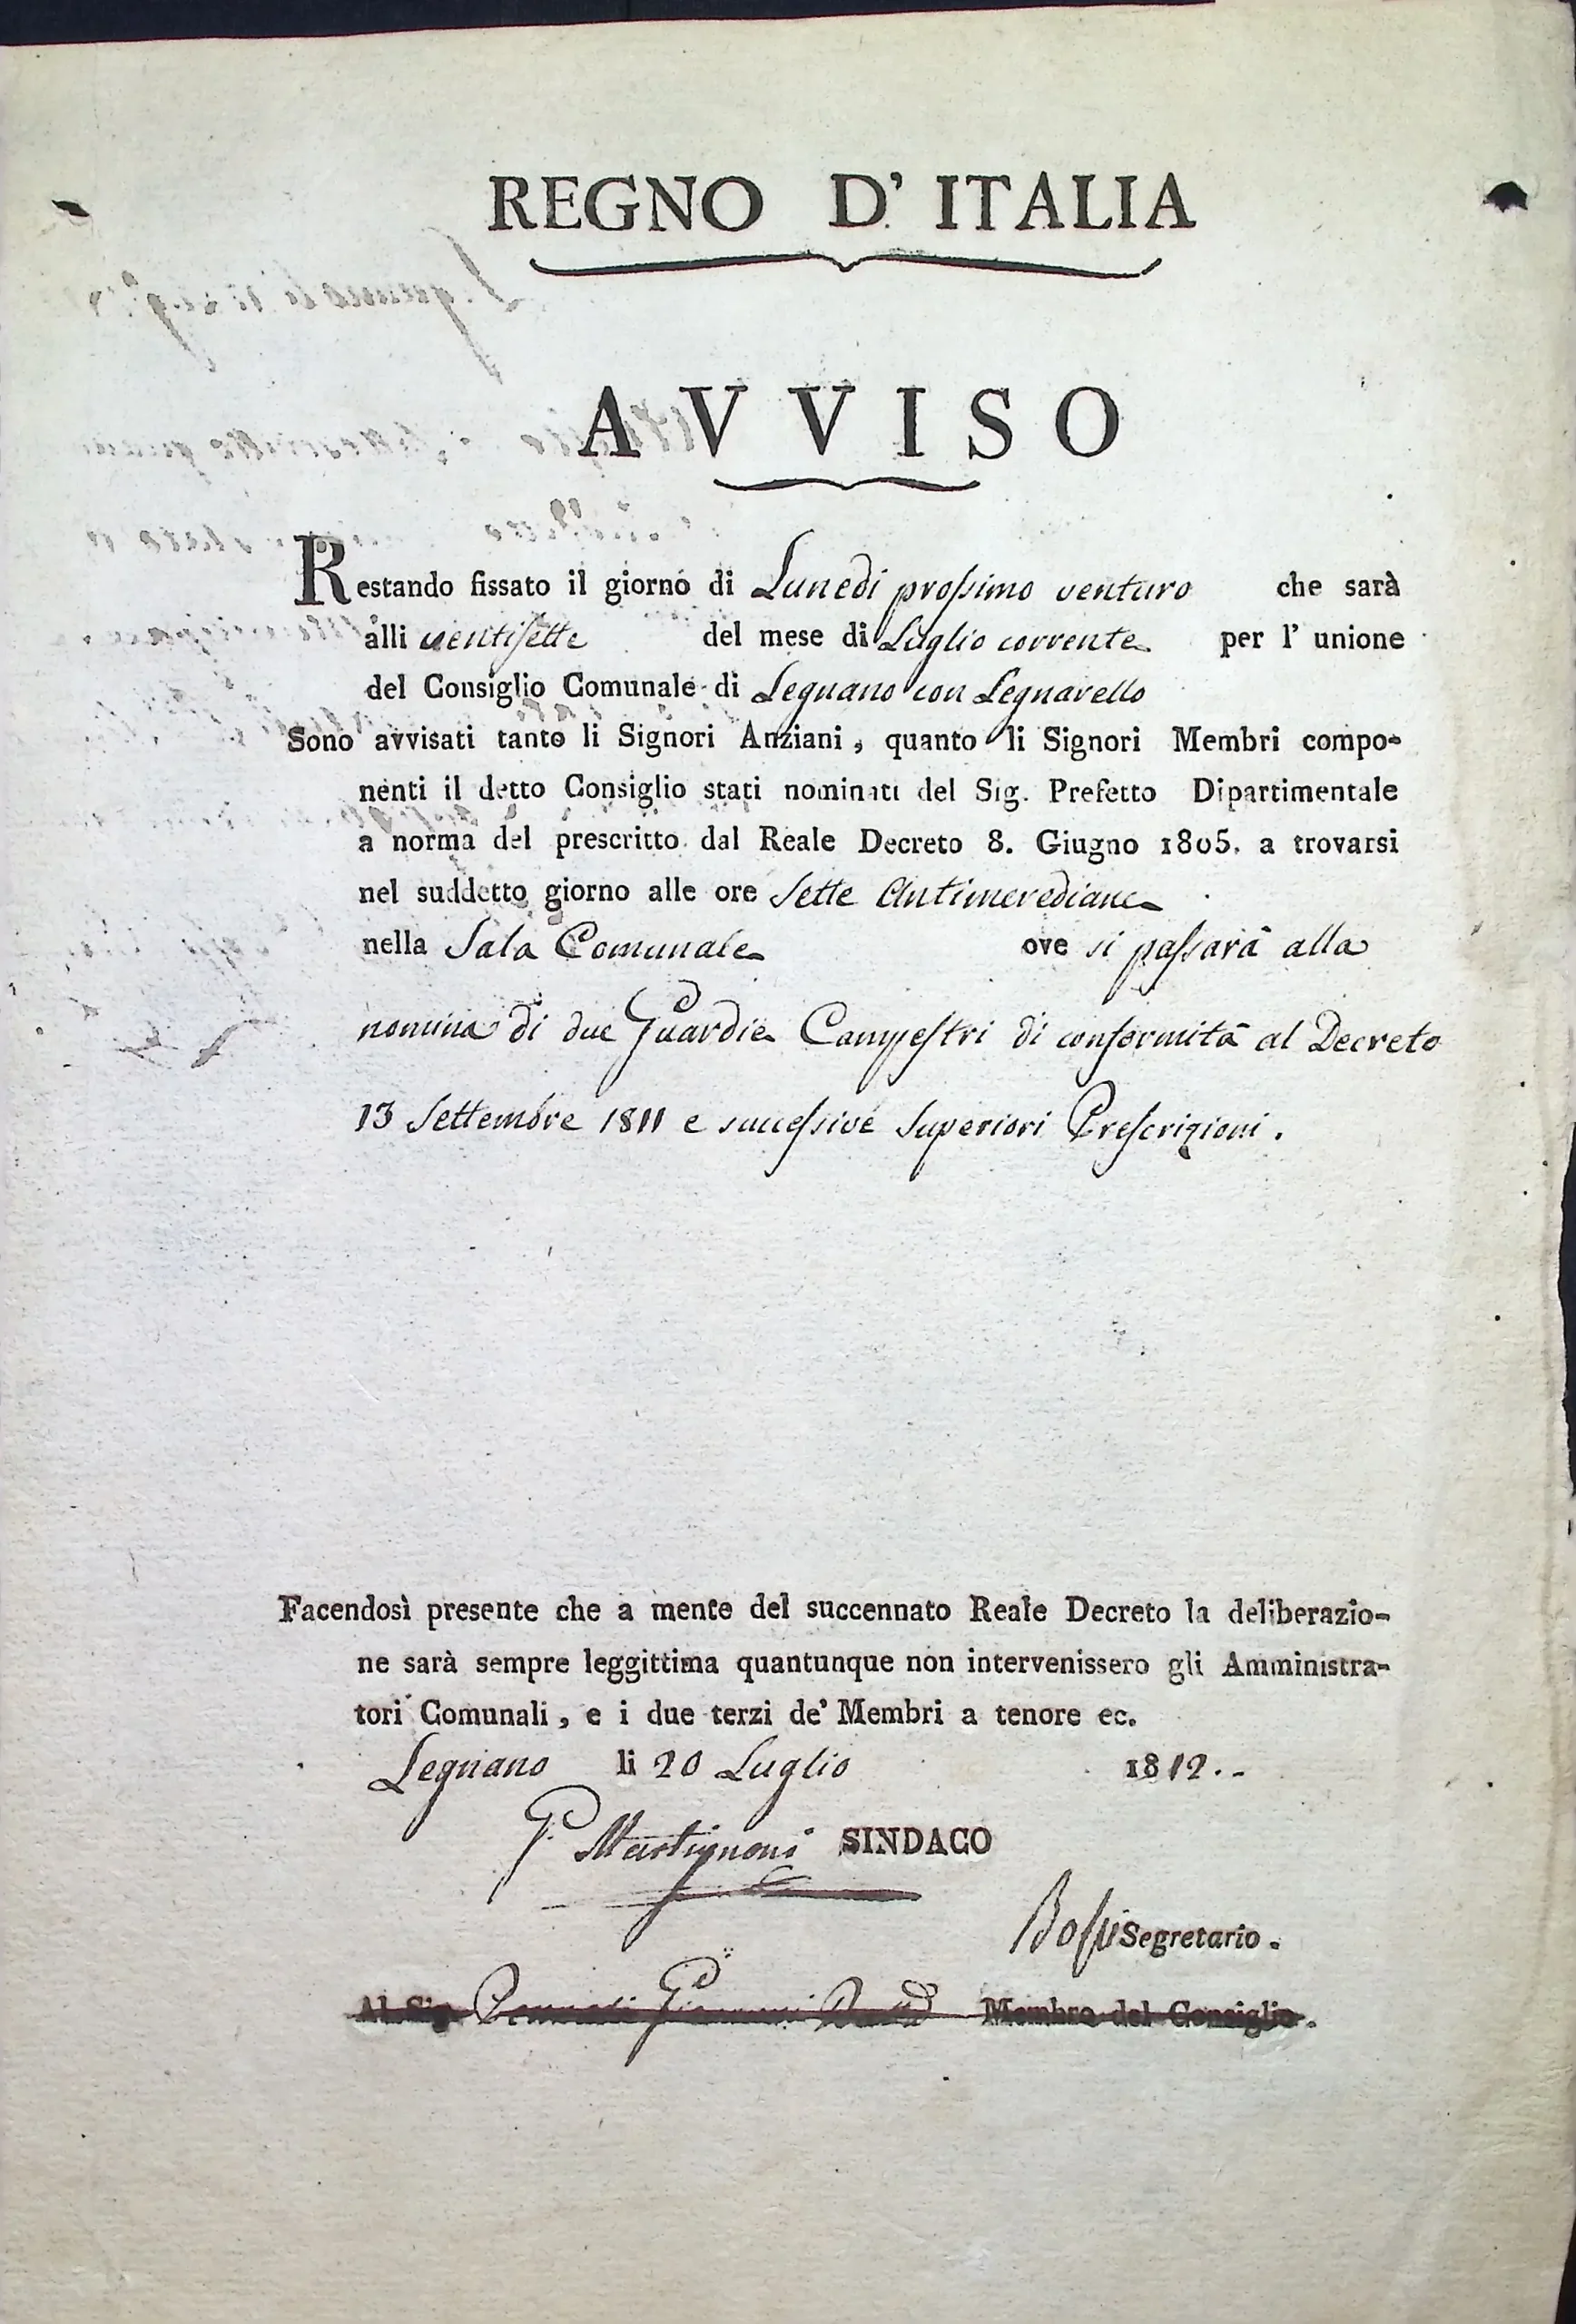 REGNO D' ITALIA
AVVISO
Restando fissato il giorno di Lunedì prossimo venturo che sarà
alli ventisette del mese di Luglio corrente per l' unione
del Consiglio Comunale di Legnano con Legnarello
Sono avvisati tanto li Signori Anziani, quanto li Signori Membri compo-
nenti il detto Consiglio stati nominati del Sig. Prefetto Dipartimentale
a norma del prescritto dal Reale Decreto 8. Giugno 1805. a trovarsi
nel suddetto giorno alle ore Sette Antimerediane
nella Sala Comunale ove si passarà alla
nomina di due Guardie Campestri di conformità al Decreto
13 Settembre 1811 e successive Superiori Prescrizioni.
Facendosì presente che a mente del succennato Reale Decreto la deliberazio-
ne sarà sempre leggittima quantunque non intervenissero gli Amministra-
tori Comunali, e i due terzi de' Membri a tenore ec.
Legnano li 20 Luglio 1812..
P. Martignoni SINDACO
Bossi Segretario.
Al Sig. Membro del Consiglio.